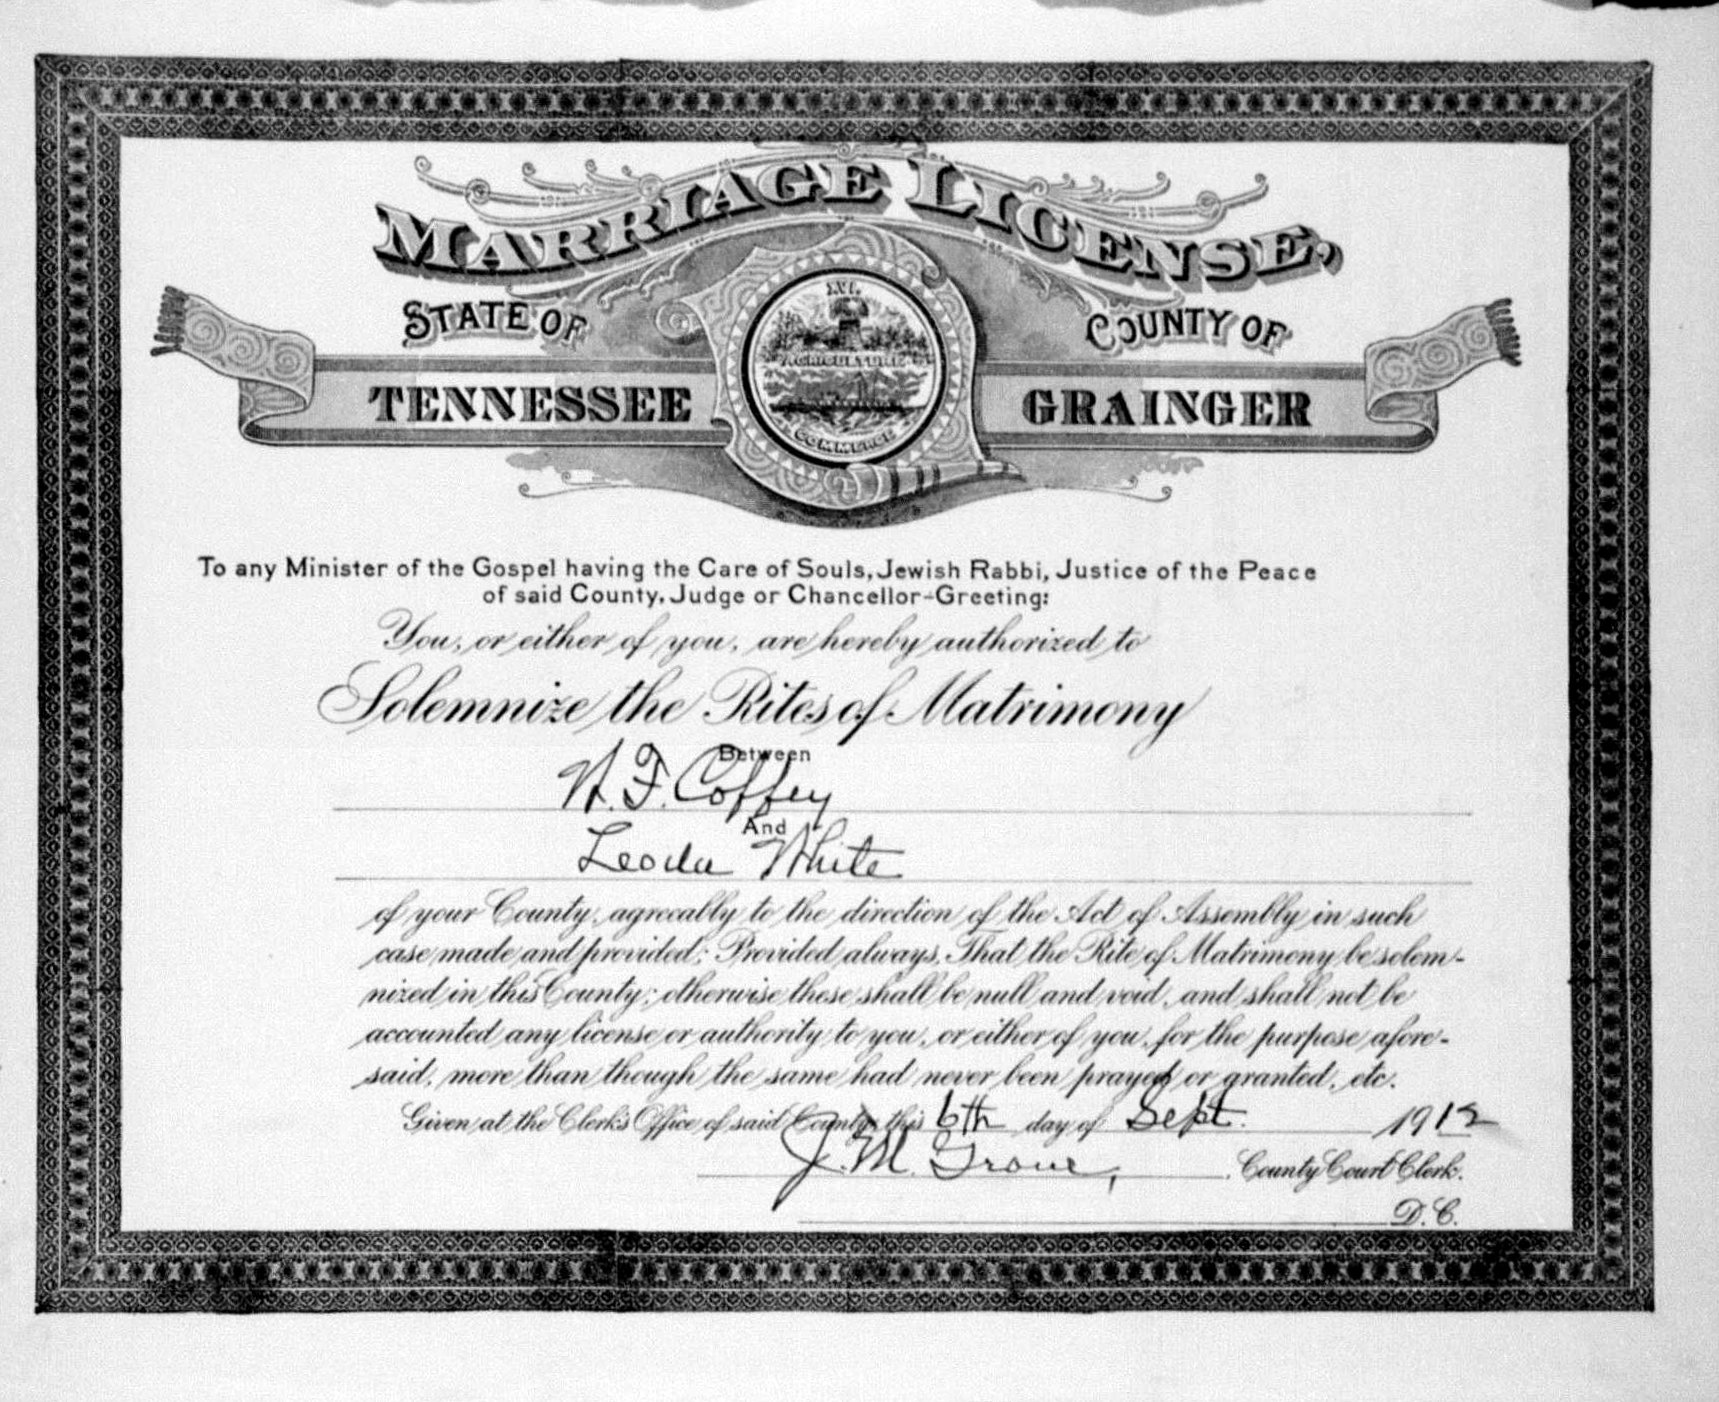 MARRIAGE LICENSE,
STATE OF
COUNTY OF
TENNESSEE
GRAINGER
XVI.
AGRICULTURE
COMMERCE
To any Minister of the Gospel having the Care of Souls, Jewish Rabbi, Justice of the Peace
of said County, Judge or Chancellor-Greeting:
You, or either of you, are hereby authorized to
Solemnize the Rites of Matrimony
Between
F. Coffey
And
Leoda White
of your County, agreeably to the direction of the Act of Assembly in such
case made and provided; Provided always, That the Rite of Matrimony be solem-
nized in this County; otherwise these shall be null and void, and shall not be
accounted any license or authority to you, or either of you, for the purpose afore-
said, more than though the same had never been prayed or granted, etc.
Given at the Clerk's Office of said County, this 6th day of Sept. 1912
J. M. , County Court Clerk.
D. C.